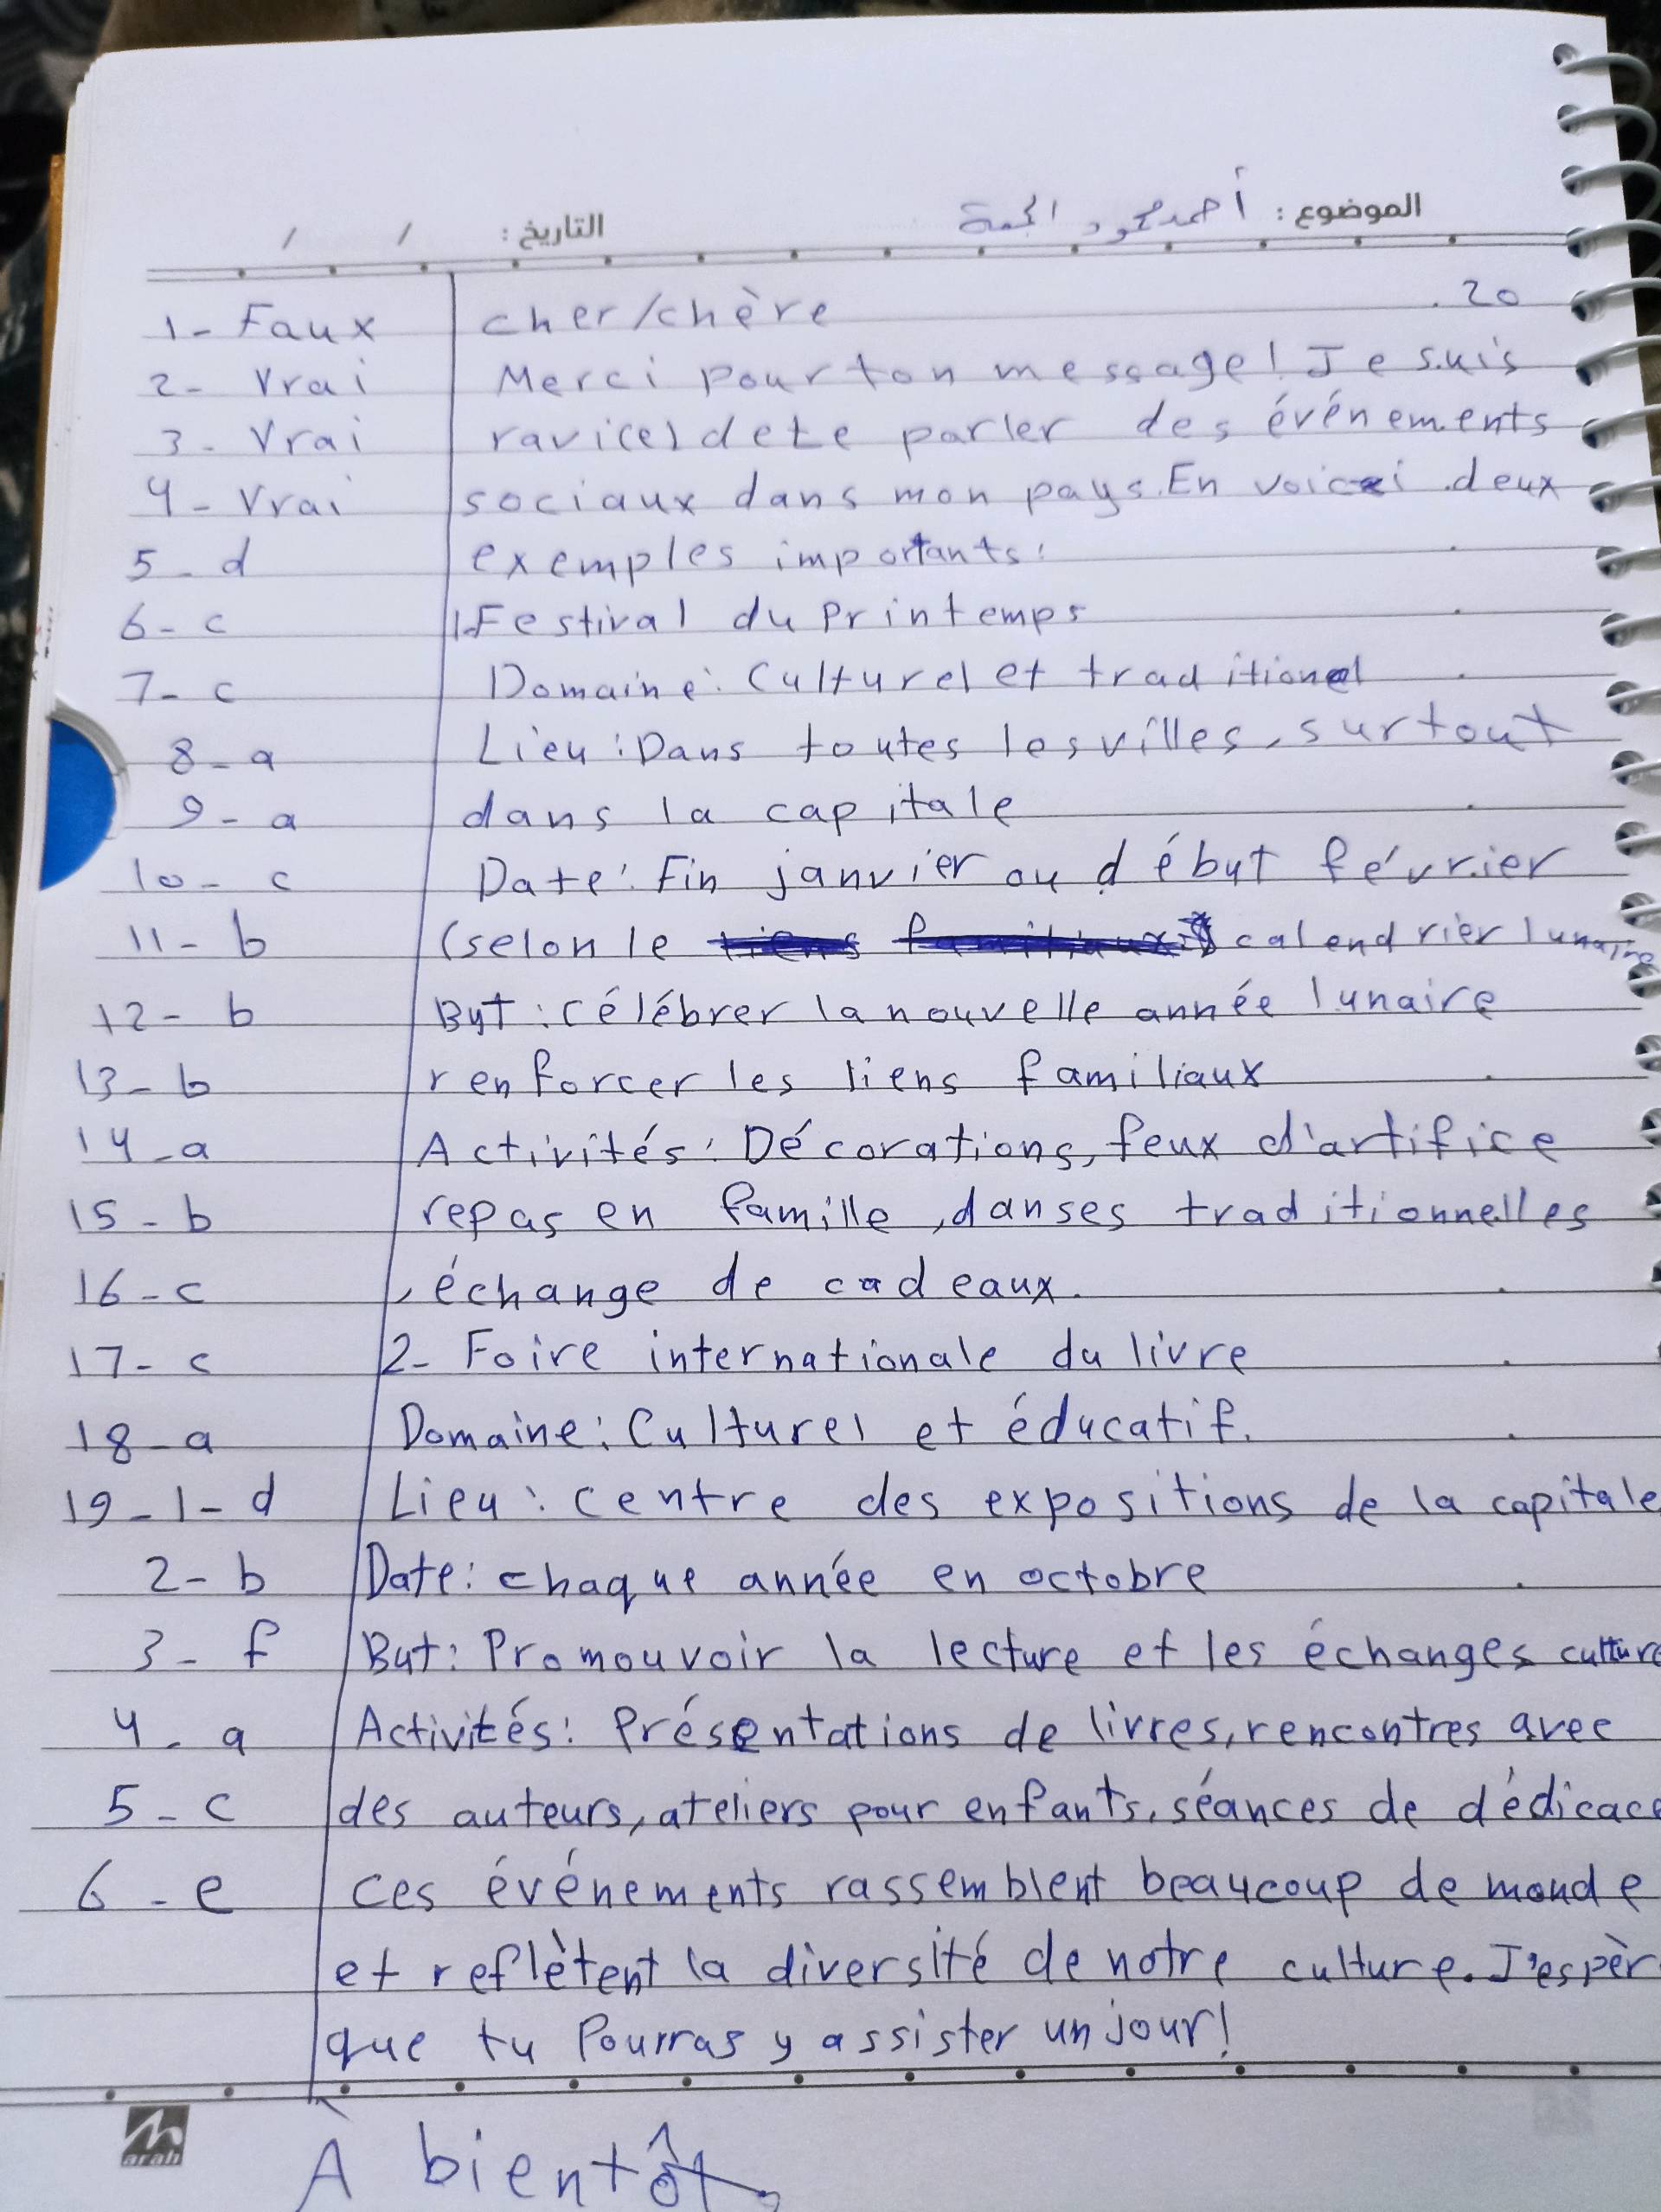 الموضوع : أحمد محمود الجمعة
التاريخ : / /
1- Faux
2- Vrai
3- Vrai
4- Vrai
5- d
6- c
7- c
8- a
9- a
10- c
11- b
12- b
13- b
14- a
15- b
16- c
17- c
18- a
19-1-d
2- b
3- f
4- a
5- c
6- e
cher/chère .20
Merci pour ton message! Je suis
ravi(e) de te parler des événements
sociaux dans mon pays. En voici deux
exemples importants:
1.Festival du Printemps
Domaine: Culturel et traditionel
Lieu: Dans toutes les villes, surtout
dans la capitale
Date: Fin janvier ou début février
(selon le calendrier lunaire
But: célébrer la nouvelle année lunaire
renforcer les liens familiaux
Activités: Décorations, feux d'artifice
repas en famille, danses traditionnelles
, échange de cadeaux.
2- Foire internationale du livre
Domaine: Culturel et éducatif.
Lieu: centre des expositions de la capitale
Date: chaque année en octobre
But: Promouvoir la lecture et les échanges culture
Activités: Présentations de livres, rencontres avec
des auteurs, ateliers pour enfants, séances de dédicace
ces événements rassemblent beaucoup de monde
et reflètent la diversité de notre culture. J'espèr
que tu Pourras y assister un jour!
À bientôt,
arah